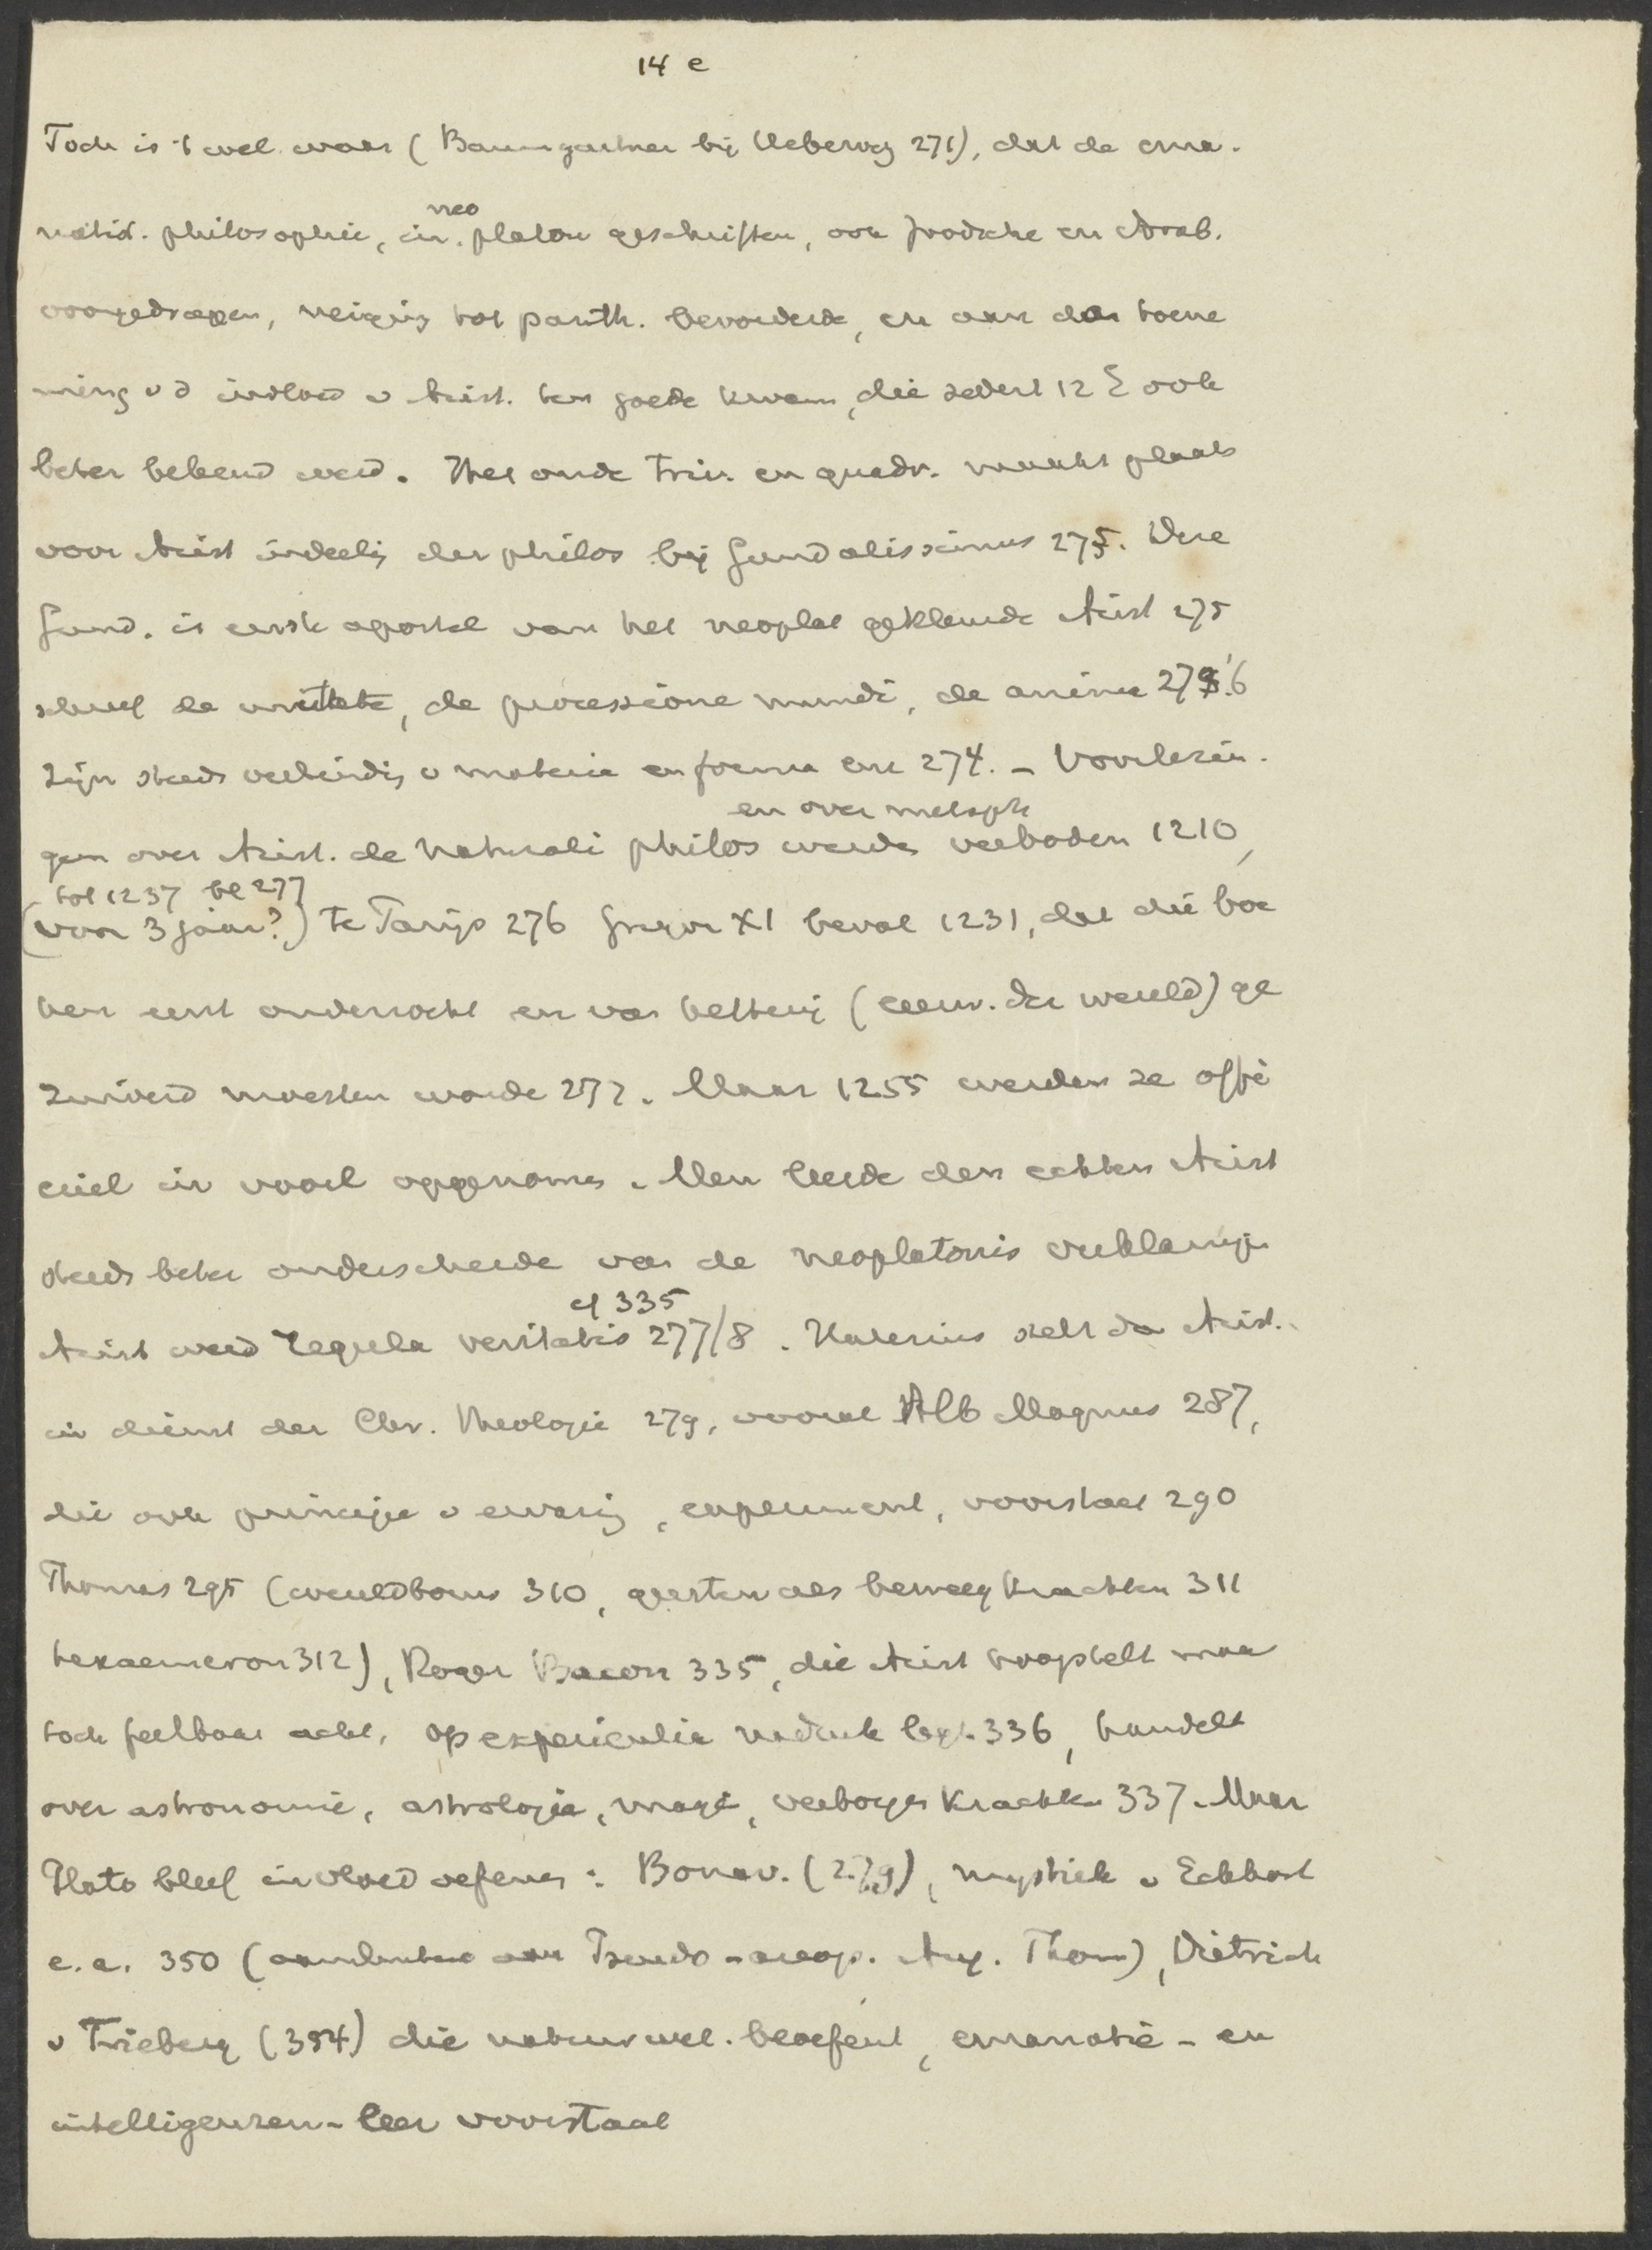 14 e
Toch is 't wel waar (Baumgartner bij Ueberweg 271), dat de ema-
natist. philosophie, in neo platon geschriften, ook Joodsche en Arab.
voorgedragen, neiging tot panth. bevorderde, en aan den toene
ming v d invloed v Arist. ten goede kwam, die sedert 12 E ook
beter bekend werd. Het oude triv. en quadr. maakt plaats
voor Arist indeeling der philos bij Gundalissinus 275. Deze
Gund. is eerste apostel van het neoplat gekleurde Arist 275
schreef de unitate, de processione mundi, de anima 275.'6
Zijn steeds verbinding v materie en forma enz 274. - Voorlezin-
en over metaph
gen over Arist. de naturali philos werden verboden 1210,
tot 1237 bl 277
(voor 3 jaar?) te Parijs 276 Gregor XI beval 1231, dat die boe
ken eerst onderzocht en van ketterij (eeuw. der wereld) ge
zuiverd moesten worde 277. Maar 1255 werden ze offi
cieel in voorl opgenomen. Men leerde den echten Arist
steeds beter onderscheide van de neoplatonis verklaringen
cf 335
Arist werd regula veritatis 277/8. Halesius stelt de Arist.
in dienst der Chr. theologie 279, vooral Alb Magnus 287,
die ook principe v ervaring, experiment, voorstaat 290
Thomas 295 (wereldbouw 310, geesten als beweegkrachten 311
hexaemeron 312), Roger Bacon 335, die Arist hoogstelt maar
toch feilbaar acht, op experientia nadruk legt 336, handelt
over astronomie, astrologie, magie, verborgen krachten 337. Maar
Plato bleef invloed oefenen: Bonav. (279), mystiek v Eckhart
e.a. 350 (aansluitend aan Pseudo-areop. Aug. Thom), Dietrich
v Frieberg (354) die natuurwet. beoefent, emanatie- en
intelligenzen-leer voorstaat